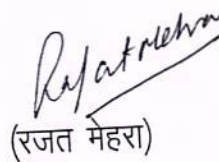 Rajat Mehra
(रजत मेहरा)